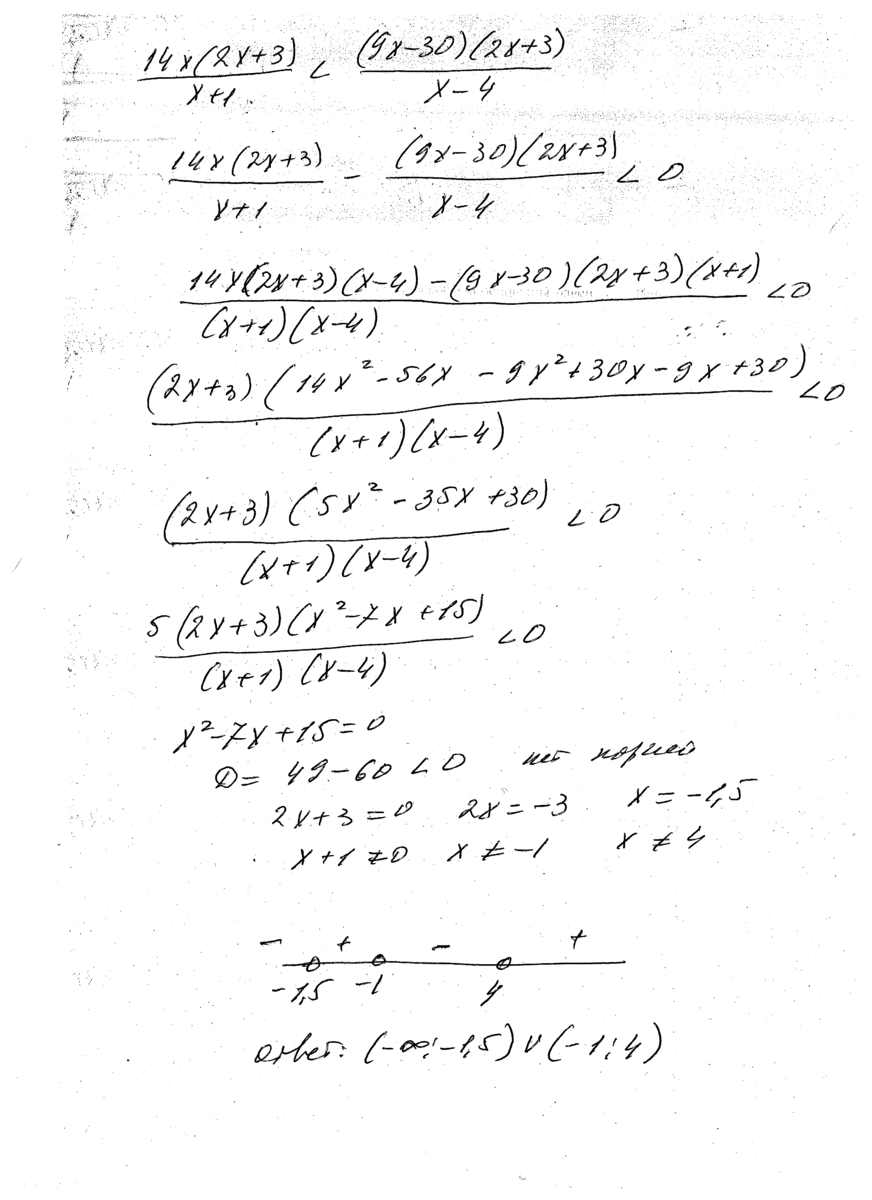 14x(2x+3)/(x+1) < (9x-30)(2x+3)/(x-4)
14x(2x+3)/(x+1) - (9x-30)(2x+3)/(x-4) < 0
14x(2x+3)(x-4)-(9x-30)(2x+3)(x+1)/((x+1)(x-4)) <0
(2x+3)(14x²-56x-9x²+30x-9x+30)/((x+1)(x-4)) <0
(2x+3)(5x²-35x+30)/((x+1)(x-4)) <0
5(2x+3)(x²-7x+15)/((x+1)(x-4)) <0
x²-7x+15=0
D= 49-60<0 нет корней
2x+3=0 2x=-3 x=-1,5
x+1≠0 x≠-1 x≠4
- + - +
-1,5 -1 4
ответ: (-∞;-1,5)∪(-1;4)